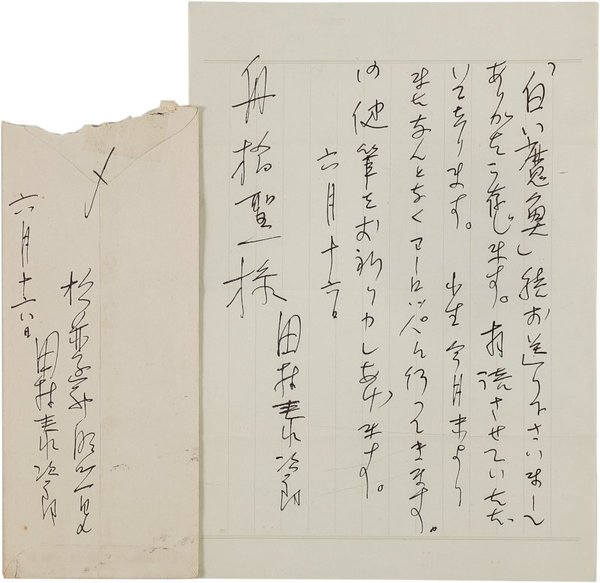 「白い魔魚」お送り下さいまして
ありがたう存じます。拝読させていたゞ
いてをります。 小生今月末より
なんとなくヨーロッパへ行つてきます。
御健筆をお祈り申しあげます。
六月十六日
田村泰次郎
舟橋聖一様
〆
田村泰次郎
六月十六日